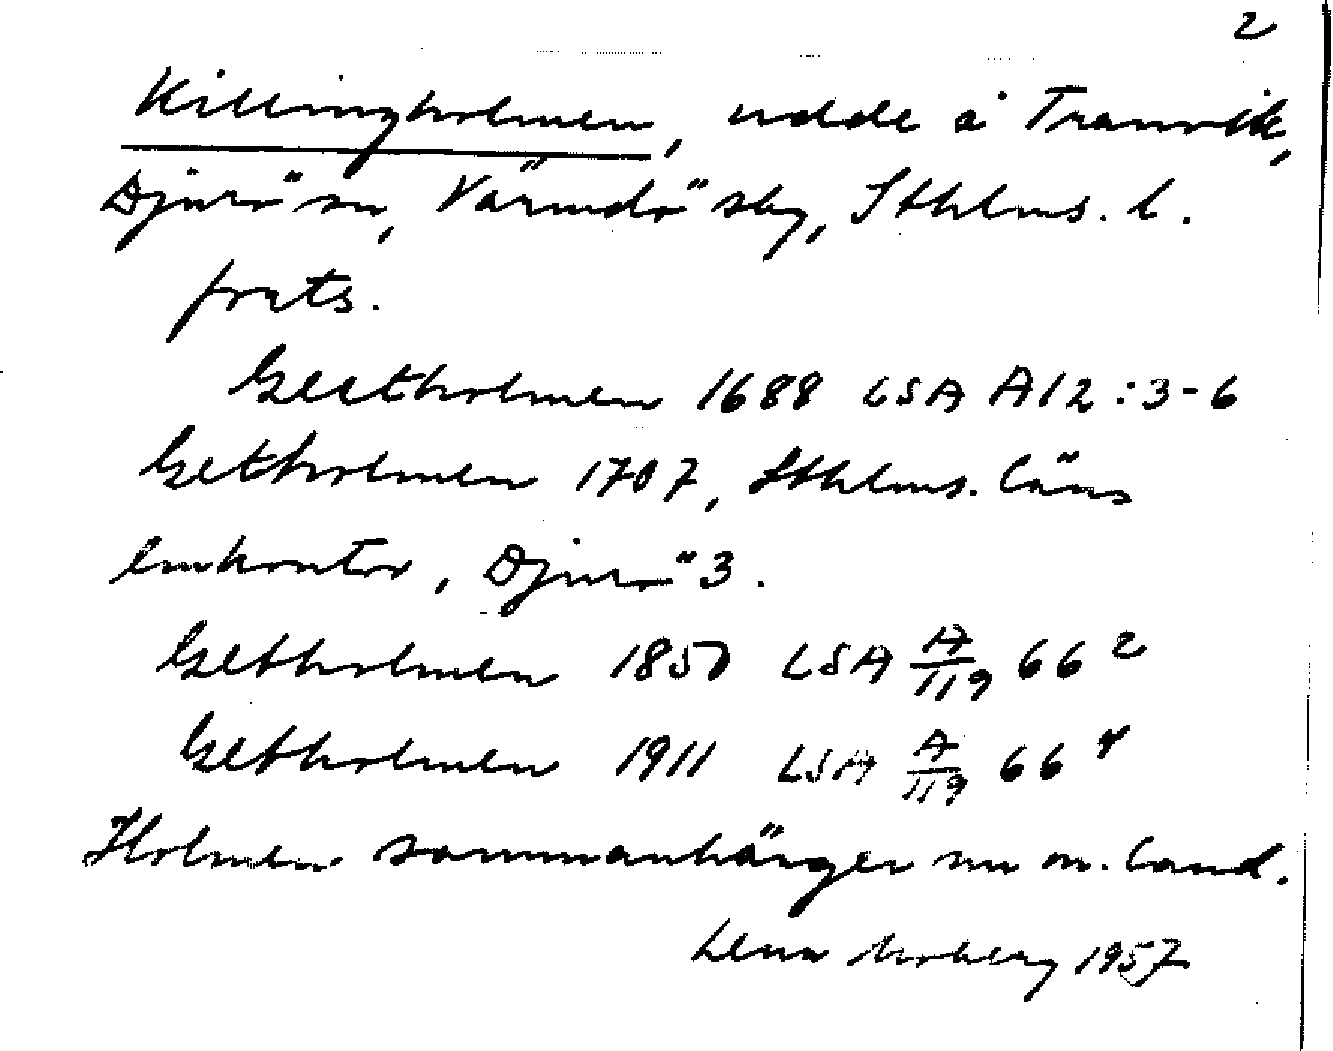 2
Killingholmen, udde å Tranvik,
Djurö sn, Värmdö skg, Sthlms. l.
forts.
Geetholmen 1688 LSA A12:3-6
Getholmen 1707, Sthlms. läns
lmkontor, Djurö 3.
Getholmen 1850 LSA A/119 66²
Getholmen 1911 LSA A/119 66⁴
Holmen sammanhänger nu m. land.
Lena Moberg 1957